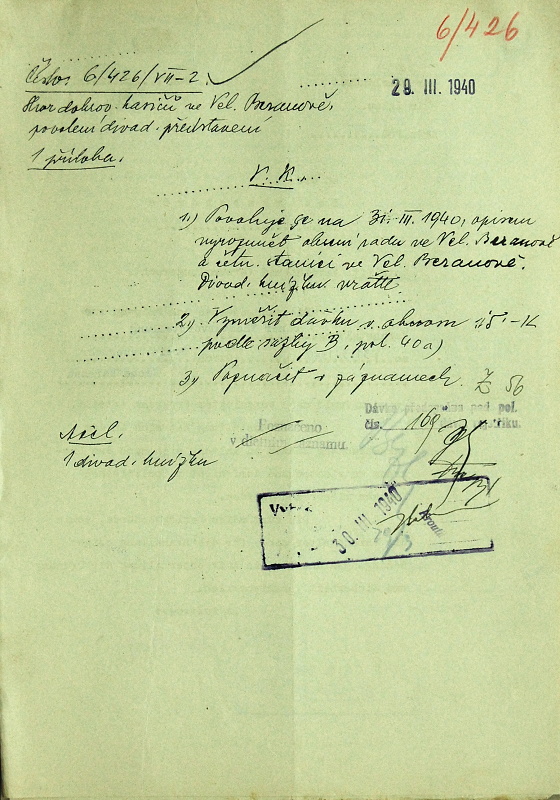 6/426
Číslo: 6/426/VII-2.
29. III. 1940
Sbor dobrov. hasičů ve Vel. Beranově,
povolení divad. představení
1 příloha.
V. K.
1.) Povoluje se na 31. III. 1940, opisem
vyrozumět obecní radu ve Vel. Beranově
a četn. stanici ve Vel. Beranově.
Divad. knížku vrátit.
2.) Vyměřit dávku v obnosu 15'-K
podle sazby B, pol. 40a)
3.) Poznačit v záznamech.
Ž 56
Dávka předepsána pod pol.
čís. 169
Poznačeno
v denním seznamu.
Ačl.
1 divad. knížku
30. III. 1940